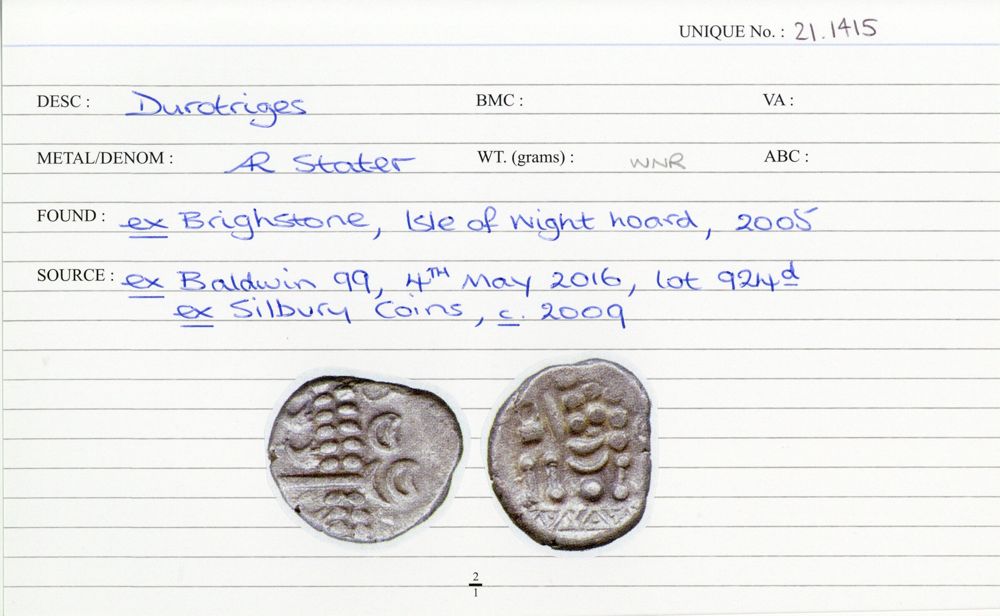 UNIQUE No. : 21.1415
DESC : Durotriges BMC : VA :
METAL/DENOM : AR Stater WT. (grams) : WNR ABC :
FOUND : ex Brighstone, Isle of Wight hoard, 2005
SOURCE : ex Baldwin 99, 4TH May 2016, lot 924d
ex Silbury Coins, c. 2009
2
1